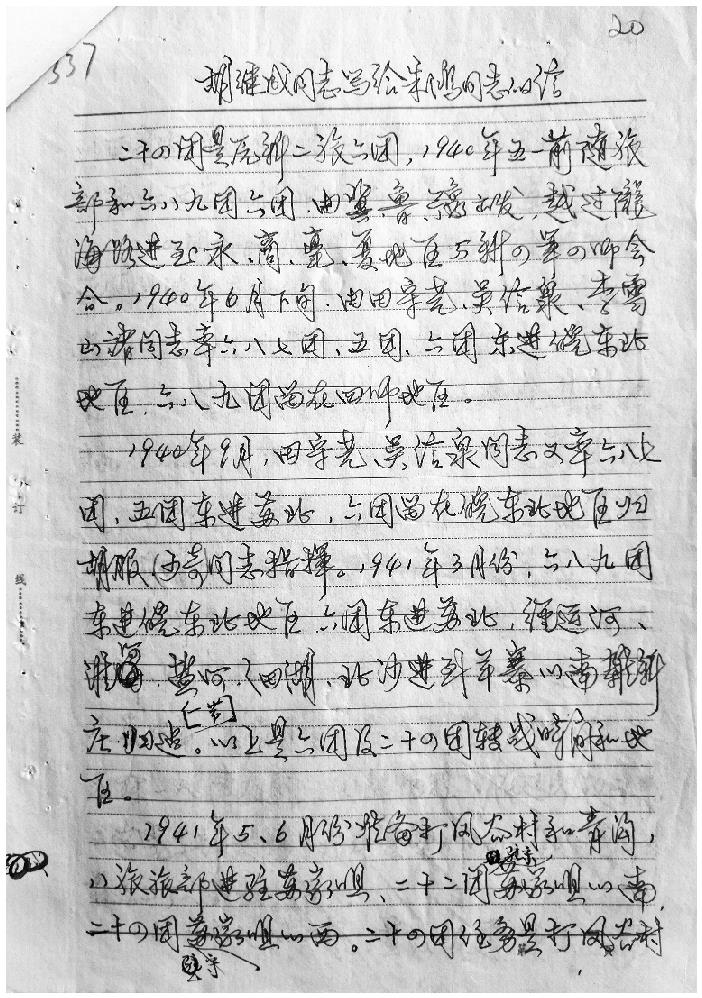 20
337
胡继成同志写给朱鸿同志的信
二十四团是原新二旅六团，1940年五一前随旅
部和六八九团六团，由冀、鲁、豫出发，越过陇
海路进至永、商、亳、夏地区与新四军四师会
合。1940年6月下旬，由田守尧、吴信泉、李雪
山诸同志率六八七团、五团、六团东进皖东北
地区，六八九团留在四师地区。
1940年9月，田守尧、吴信泉同志又率六八七
团，五团东进苏北，六团留在皖东北地区归
胡服（少奇同志指挥。1941年3月份，六八九团
东进皖东北地区，六团东进苏北，经运河、
淮河、盐河、田湖、北沙进到羊寨以南
庄归建。以上是六团及二十四团转战时间和地
区。
1941年5、6月份准备打凤谷村和青沟，
八旅旅部进驻苏家咀、二十二团苏家咀以南，
二十四团苏家咀以西。二十四团任务是打凤谷村
装
订
线